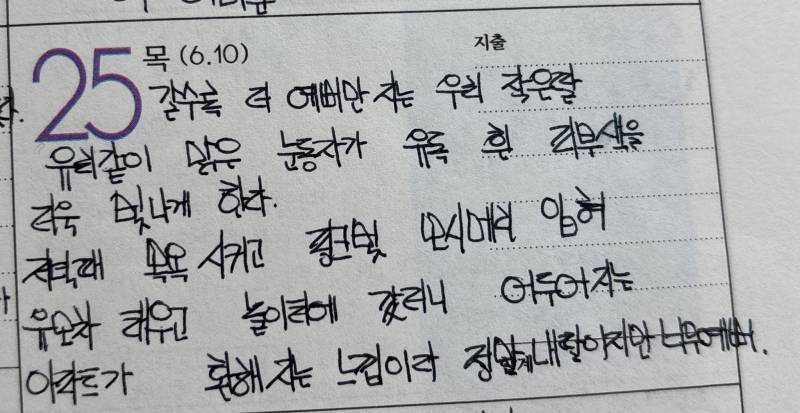 25 목 (6.10) 지출
갈수록 더 예뻐만 지는 우리 작은딸
유리같이 맑은 눈동자가 유독 흰 피부색을
더욱 빛나게 한다.
저녁때 목욕 시키고 핑크빛 란시메리 입혀
유모차 태우고 놀이터에 갔더니 어두어지는
아파트가 환해 지는 느낌이라 정말 내딸이지만 너무예뻐.